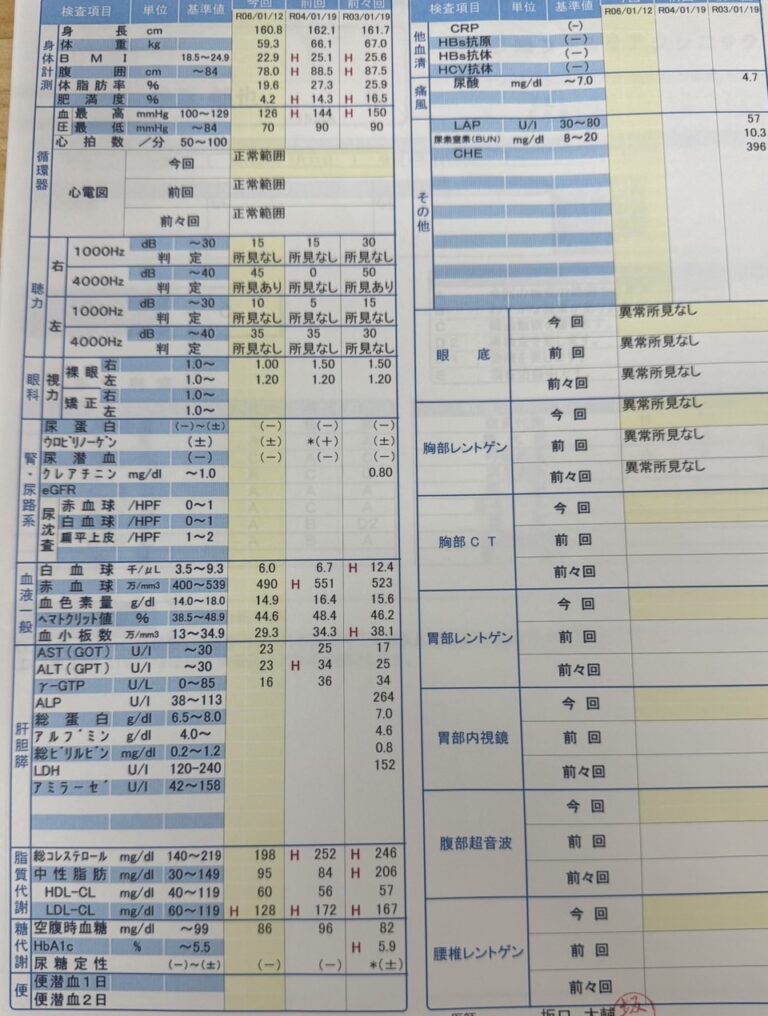 検査項目 単位 基準値 今回 前回 前々回
R06/01/12 R04/01/19 R03/01/19
身体計測
身長 cm 160.8 162.1 161.7
体重 kg 59.3 66.1 67.0
BMI 18.5~24.9 22.9 H 25.1 H 25.6
腹囲 cm ~84 78.0 H 88.5 H 87.5
体脂肪率 % 19.6 27.3 25.9
肥満度 % 4.2 H 14.3 H 16.5
循環器
血圧 最高 mmHg 100~129 126 H 144 H 150
最低 mmHg ~84 70 90 90
心拍数 /分 50~100
心電図 今回 正常範囲
前回 正常範囲
前々回 正常範囲
聴力
右 1000Hz dB ~30 15 15 30
判定 所見なし 所見なし 所見なし
4000Hz dB ~40 45 0 50
判定 所見あり 所見なし 所見あり
左 1000Hz dB ~30 10 5 15
判定 所見なし 所見なし 所見なし
4000Hz dB ~40 35 35 30
判定 所見なし 所見なし 所見なし
眼科
視力 裸眼 右 1.0~ 1.00 1.50 1.50
左 1.0~ 1.20 1.20 1.20
矯正 右 1.0~
左 1.0~
腎・尿路系
尿蛋白 (-)~(±) (-) (-) (-)
ウロビリノーゲン (±) (±) *(+) (±)
尿潜血 (-) (-) (-) (-)
クレアチニン mg/dl ~1.0 0.80
eGFR
尿沈査 赤血球 /HPF 0~1
白血球 /HPF 0~1
扁平上皮 /HPF 1~2
血液一般
白血球 千/μL 3.5~9.3 6.0 6.7 H 12.4
赤血球 万/mm3 400~539 490 H 551 523
血色素量 g/dl 14.0~18.0 14.9 16.4 15.6
ヘマトクリット値 % 38.5~48.9 44.6 48.4 46.2
血小板数 万/mm3 13~34.9 29.3 34.3 H 38.1
肝胆膵
AST(GOT) U/l ~30 23 25 17
ALT(GPT) U/l ~30 23 H 34 25
γ-GTP U/L 0~85 16 36 34
ALP U/l 38~113 264
総蛋白 g/dl 6.5~8.0 7.0
アルブミン g/dl 4.0~ 4.6
総ビリルビン mg/dl 0.2~1.2 0.8
LDH U/l 120-240 152
アミラーゼ U/l 42~158
脂質代謝
総コレステロール mg/dl 140~219 198 H 252 H 246
中性脂肪 mg/dl 30~149 95 84 H 206
HDL-CL mg/dl 40~119 60 56 57
LDL-CL mg/dl 60~119 H 128 H 172 H 167
糖代謝
空腹時血糖 ~99 86 96 82
HbA1c % ~5.5 H 5.9
尿糖定性 (-)~(±) (-) (-) *(±)
便
便潜血1日
便潜血2日
検査項目 単位 基準値
R06/01/12 R04/01/19 R03/01/19
他血清
CRP (-)
HBs抗原 (-)
HBs抗体 (-)
HCV抗体 (-)
痛風
尿酸 mg/dl ~7.0 4.7
その他
LAP U/l 30~80 57
尿素窒素(BUN) mg/dl 8~20 10.3
CHE 396
眼底 今回 異常所見なし
前回 異常所見なし
前々回 異常所見なし
胸部レントゲン 今回 異常所見なし
前回 異常所見なし
前々回 異常所見なし
胸部CT 今回
前回
前々回
胃部レントゲン 今回
前回
前々回
胃部内視鏡 今回
前回
前々回
腹部超音波 今回
前回
前々回
腰椎レントゲン 今回
前回
前々回
坂口 大輔